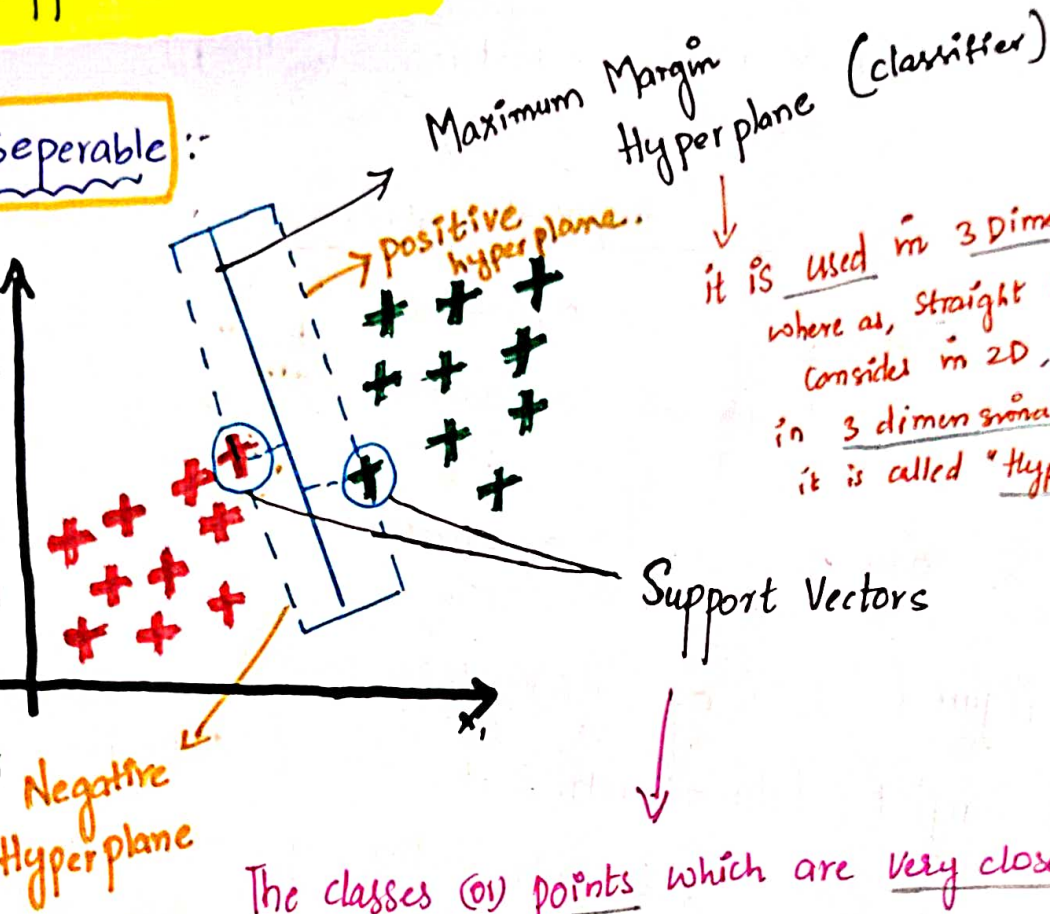 Seperable :-
Maximum Margin
Hyperplane (classifier)
positive
hyperplane.
it is used in 3 Dime
where as, Straight
Consider in 2D,
in 3 dimensiona
it is called "Hyp
Support Vectors
x₁
Negative
Hyperplane
The classes (or) points which are very close